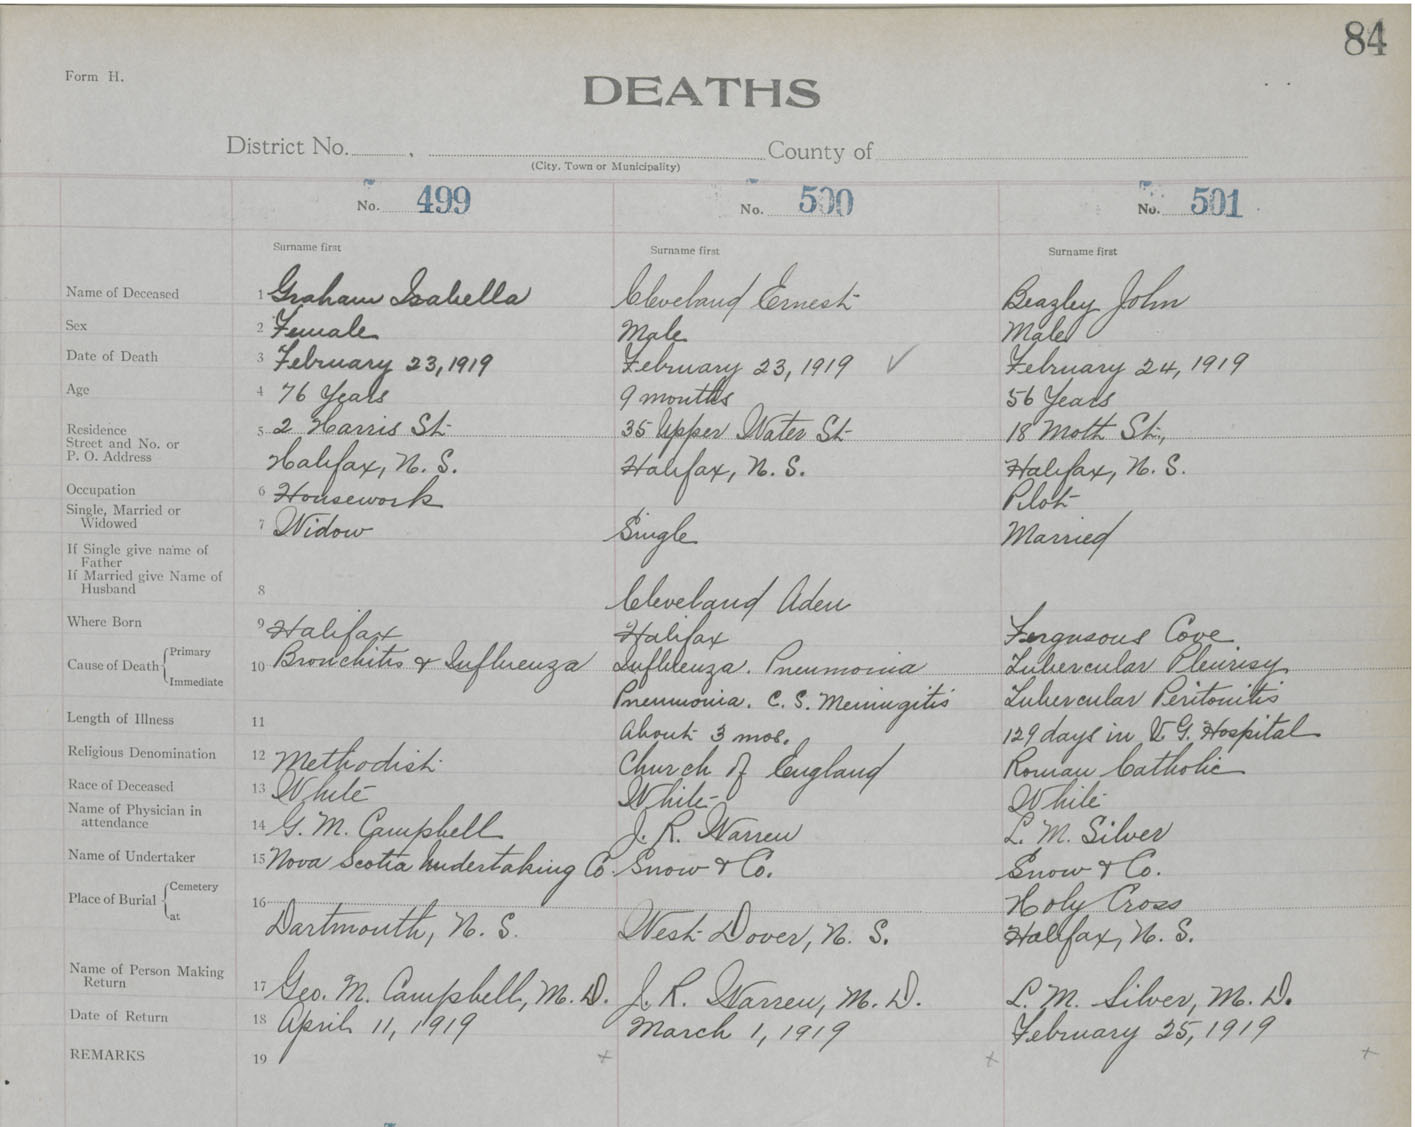 84
Form H.
DEATHS
District No. , County of
(City, Town or Municipality)
No. 499 No. 500 No. 501
Surname first Surname first Surname first
Name of Deceased 1 Graham Isabella Cleveland Ernest Beazley John
Sex 2 Female Male Male
Date of Death 3 February 23, 1919 February 23, 1919 ✓ February 24, 1919
Age 4 76 Years 9 months 56 Years
Residence
Street and No. or 5 2 Harris St 35 Upper Water St 18 Moth St.,
P. O. Address Halifax, N. S. Halifax, N. S. Halifax, N. S.
Occupation 6 Housework Pilot
Single, Married or
Widowed 7 Widow Single Married
If Single give name of
Father
If Married give Name of
Husband 8 Cleveland Aden
Where Born 9 Halifax Halifax Fergusons Cove
Cause of Death { Primary 10 Bronchitis & Influenza Influenza. Pneumonia Tubercular Pleurisy
Immediate Pneumonia. C. S. Meningitis Tubercular Peritonitis
Length of Illness 11 About 3 mos. 129 days in V G. Hospital
Religious Denomination 12 Methodist Church of England Roman Catholic
Race of Deceased 13 White White White
Name of Physician in
attendance 14 G. M. Campbell J. R. Warren L. M. Silver
Name of Undertaker 15 Nova Scotia Undertaking Co. Snow & Co. Snow & Co.
Place of Burial { Cemetery 16 Holy Cross
at Dartmouth, N. S. West Dover, N. S. Halifax, N. S.
Name of Person Making
Return 17 Geo. M. Campbell, M. D. J. R. Warren, M. D. L. M. Silver, M. D.
Date of Return 18 April 11, 1919 March 1, 1919 February 25, 1919
REMARKS 19 + + +